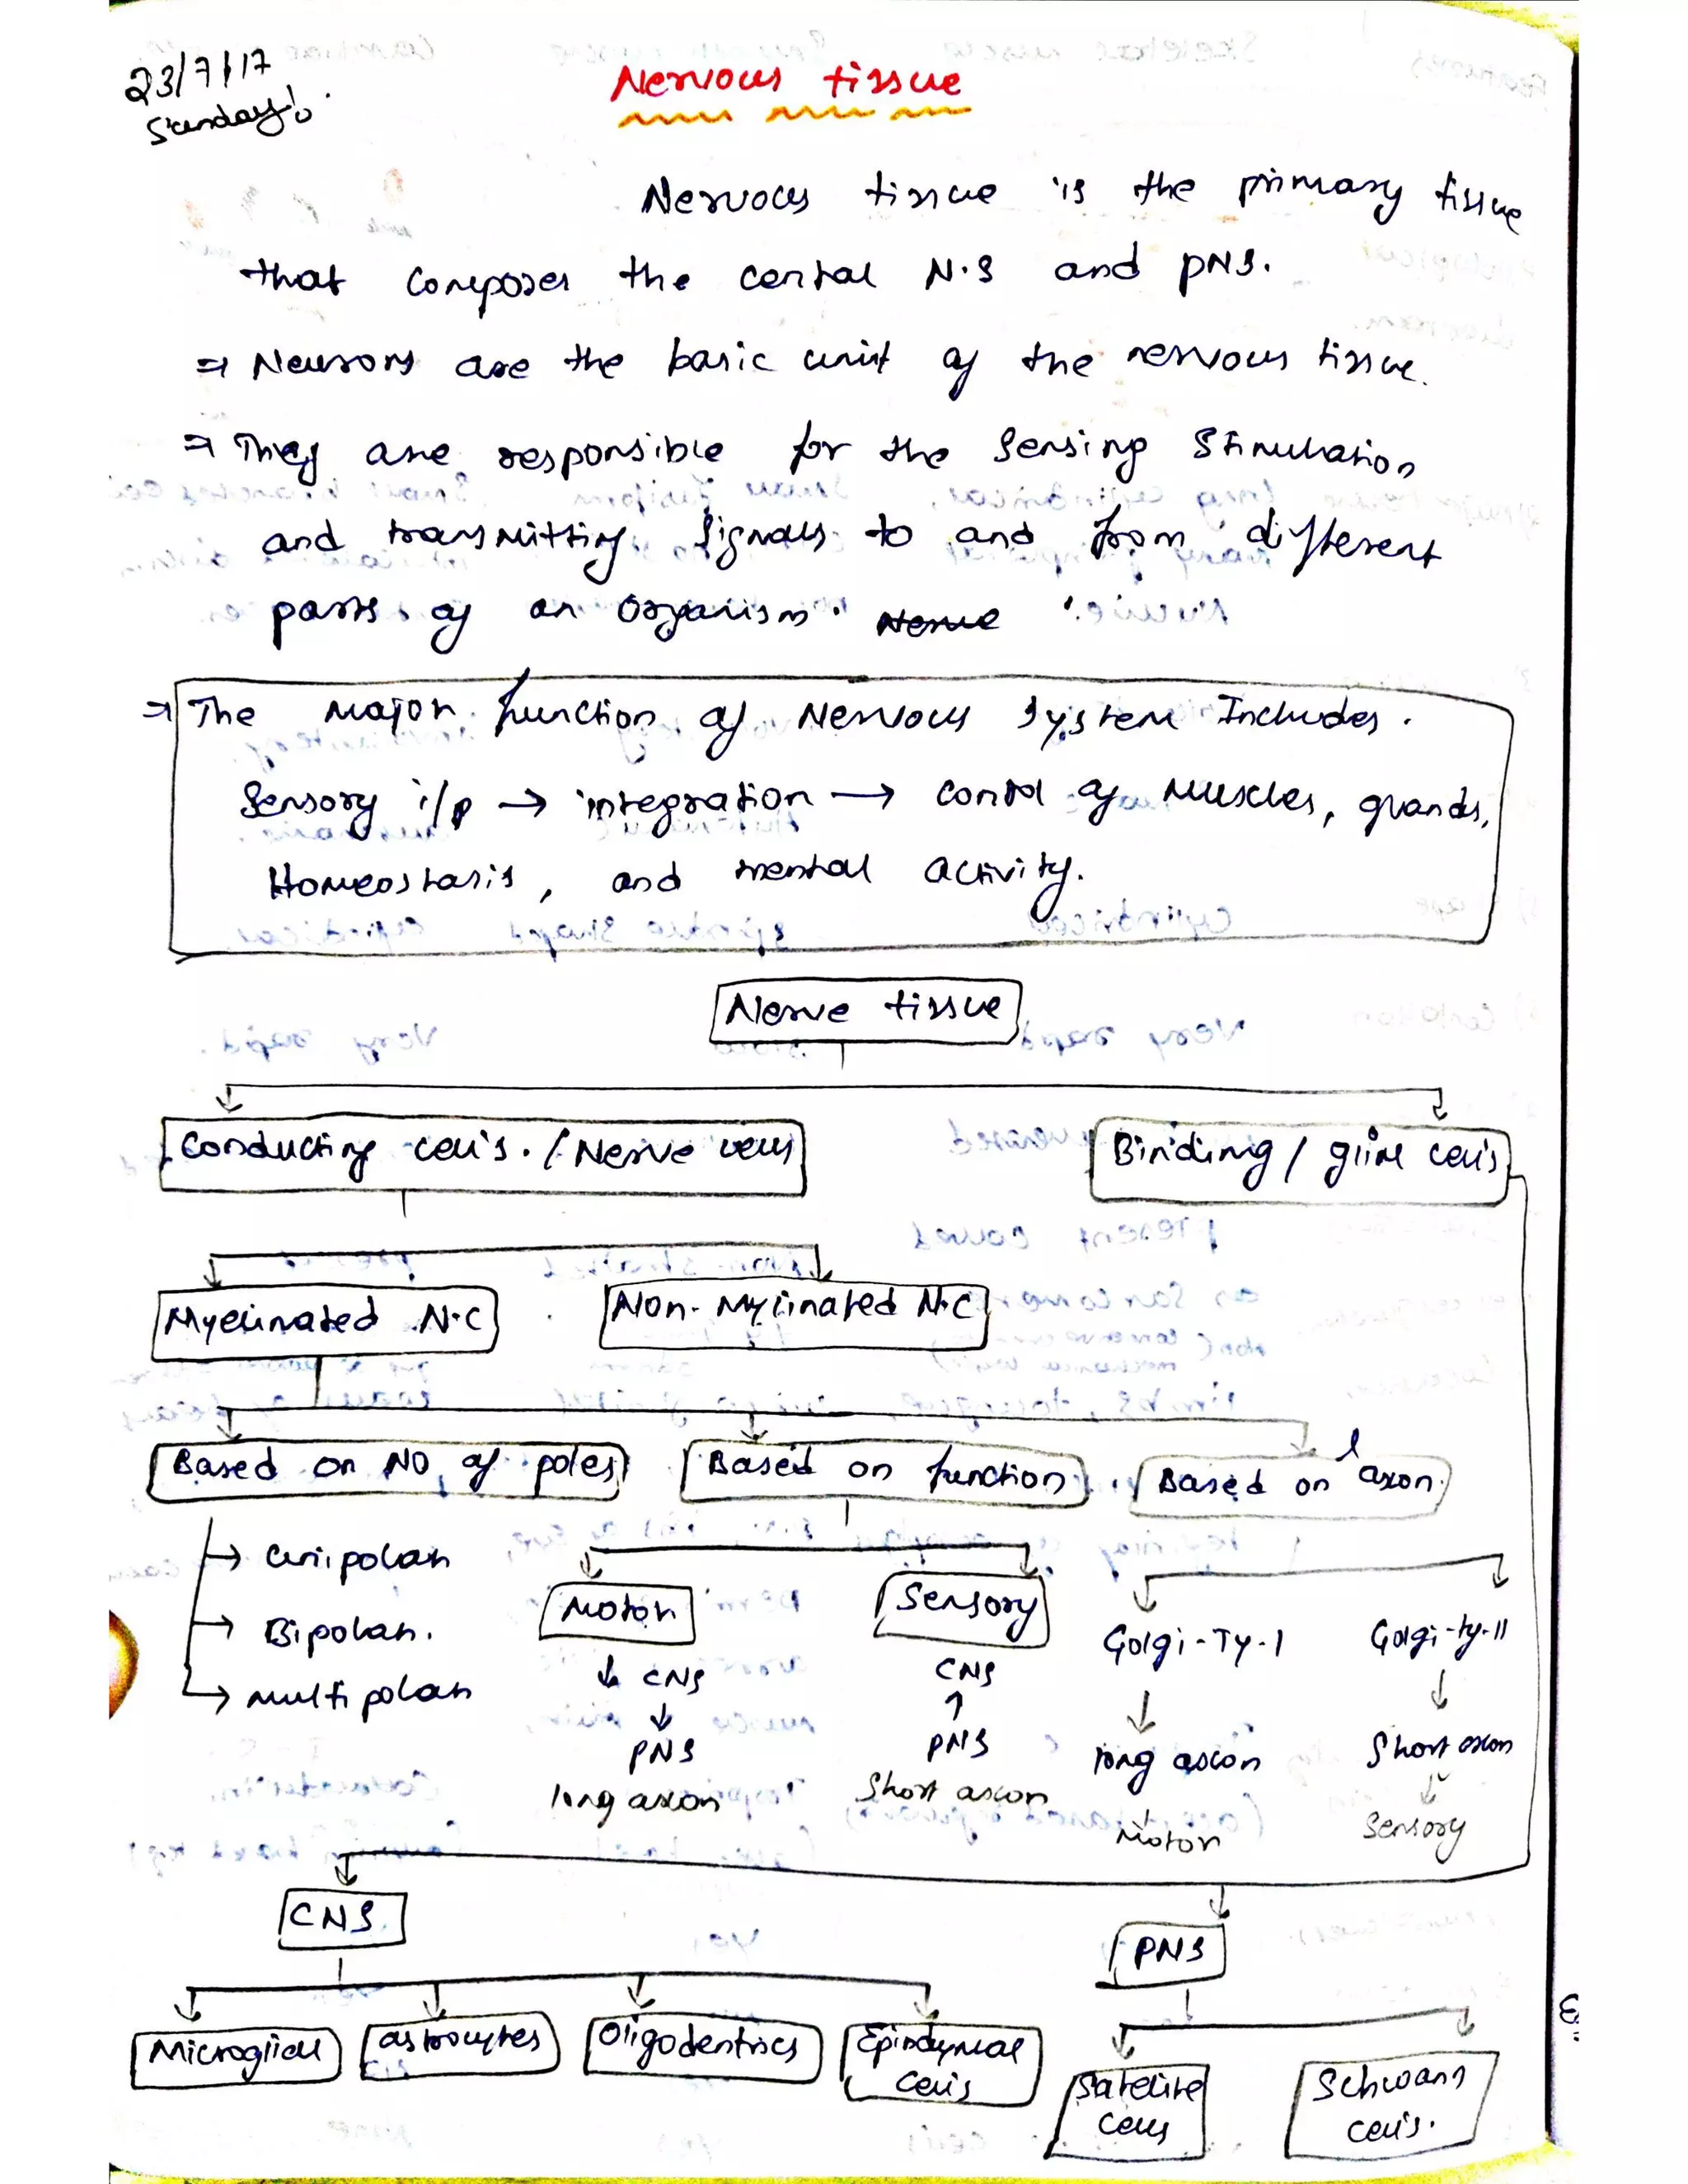 23/7/17
Sunday!
Nervous tissue
Nervous tissue is the primary tissue
that composes the central N.S and PNS.
⇒ Neurons are the basic unit of the nervous tissue.
⇒ They are responsible for the sensing stimulation
and transmitting signals to and from different
parts of an organism. Nerve
⇒ The major function of Nervous system Includes.
Sensory i/p → integration → control of muscles, glands,
Homeostasis, and mental activity.
Nerve tissue
Conducting cells. / Nerve cells
Binding / glial cells
Myelinated N.C
Non-Mylinated N.C
Based on NO. of poles
Based on function
Based on l axon.
→ unipolar
→ Bipolar.
→ multipolar
Motor
↓ CNS
↓
PNS
long axon
Sensory
CNS
↑
PNS
Short axon
Golgi-Ty-I
↓
long axon
↓
Motor
Golgi-ty-II
↓
Short axon
↓
Sensory
CNS
PNS
Microglial
astrocytes
Oligodentrics
Epindymal
cells
Satelite
cells
Schwann
cells.